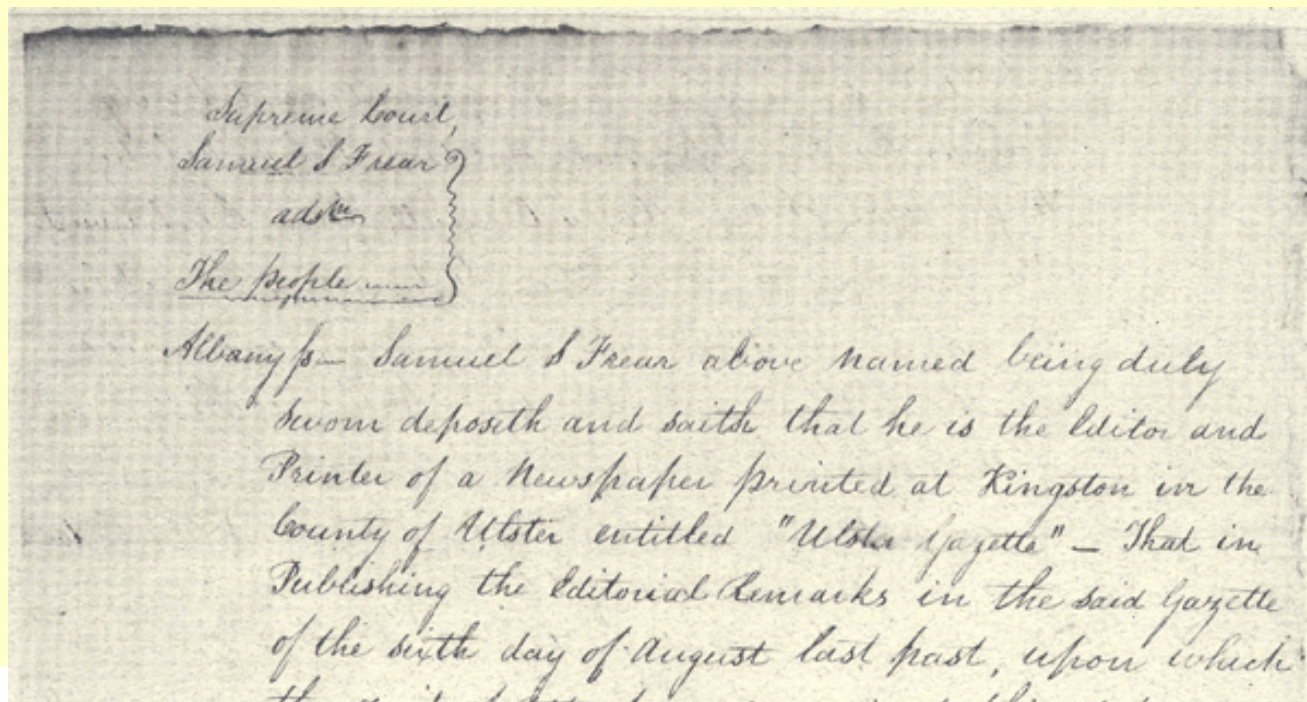 Supreme Court,
Samuel S Frear
ads
The people
Albany ss— Samuel S Frear above named being duly
sworn deposeth and saith that he is the Editor and
Printer of a Newspaper printed at Kingston in the
County of Ulster entitled "Ulster Gazette" — That in
Publishing the Editorial Remarks in the said Gazette
of the sixth day of August last past, upon which